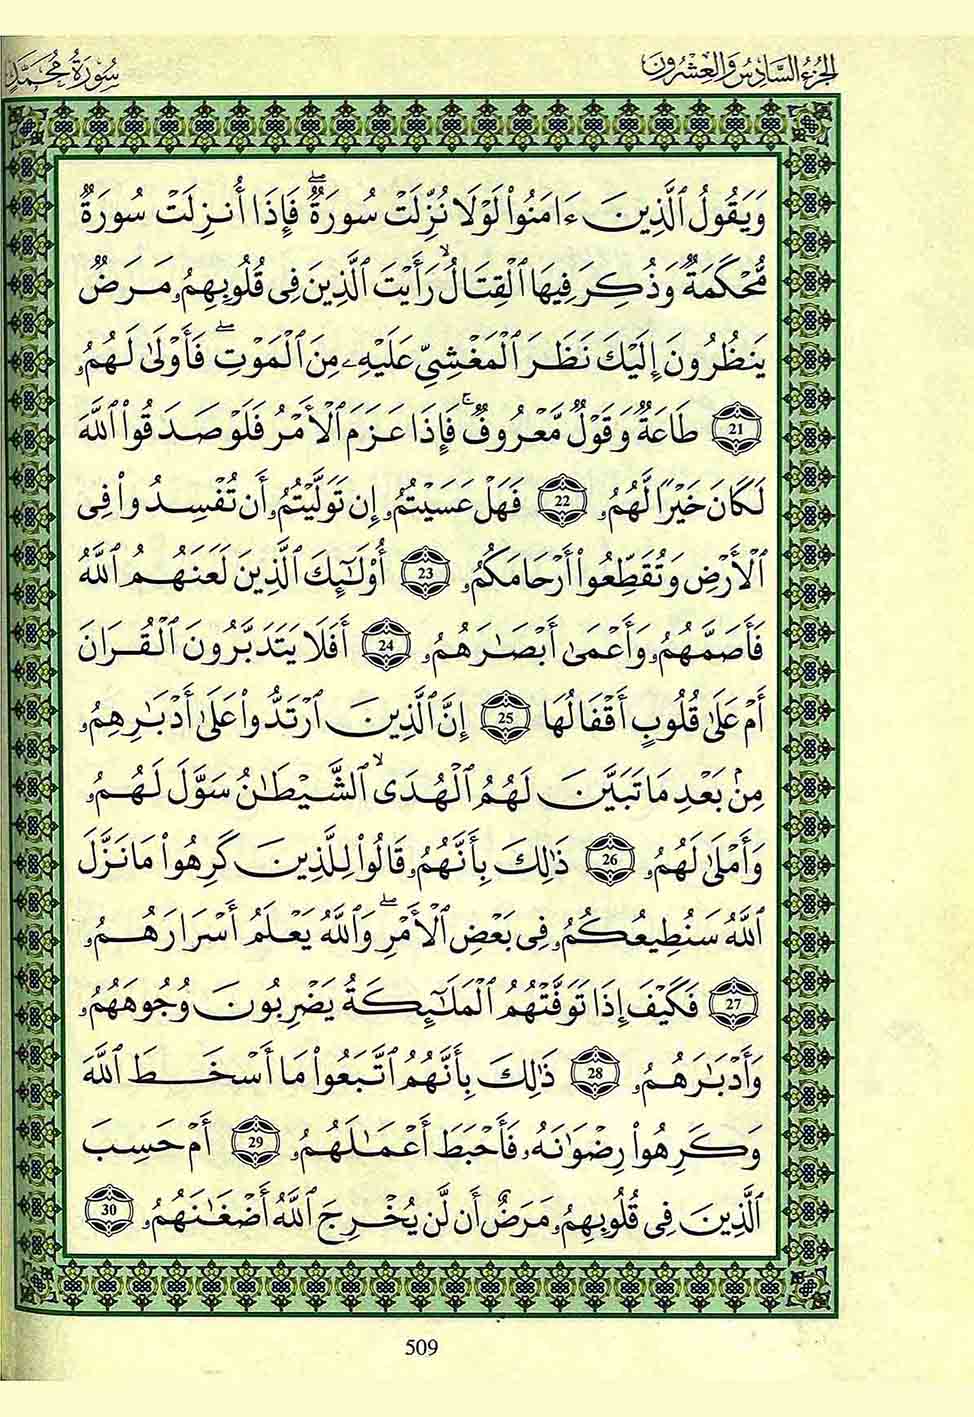 الجزء السادس والعشرون
سورة محمد
وَيَقُولُ ٱلَّذِينَ ءَامَنُوا۟ لَوْلَا نُزِّلَتْ سُورَةٌۖ فَإِذَا أُنزِلَتْ سُورَةٌ
مُّحْكَمَةٌ وَذُكِرَ فِيهَا ٱلْقِتَالُ ۙ رَأَيْتَ ٱلَّذِينَ فِى قُلُوبِهِمُۥ مَرَضٌ
يَنظُرُونَ إِلَيْكَ نَظَرَ ٱلْمَغْشِىِّ عَلَيْهِۦ مِنَ ٱلْمَوْتِۖ فَأَوْلَىٰ لَهُمُۥ
21 طَاعَةٌ وَقَوْلٌ مَّعْرُوفٌۚ فَإِذَا عَزَمَ ٱلْأَمْرُ فَلَوْ صَدَقُوا۟ ٱللَّهَ
لَكَانَ خَيْرًا لَّهُمُۥ 22 فَهَلْ عَسَيْتُمُۥ إِن تَوَلَّيْتُمُۥ أَن تُفْسِدُوا۟ فِى
ٱلْأَرْضِ وَتُقَطِّعُوا۟ أَرْحَامَكُمُۥ 23 أُوْلَٰٓئِكَ ٱلَّذِينَ لَعَنَهُمُ ٱللَّهُ
فَأَصَمَّهُمُۥ وَأَعْمَىٰ أَبْصَٰرَهُمُۥ 24 أَفَلَا يَتَدَبَّرُونَ ٱلْقُرَانَ
أَمْ عَلَىٰ قُلُوبٍ أَقْفَالُهَا 25 إِنَّ ٱلَّذِينَ ٱرْتَدُّوا۟ عَلَىٰ أَدْبَٰرِهِمُۥ
مِنۢ بَعْدِ مَا تَبَيَّنَ لَهُمُ ٱلْهُدَى ۙ ٱلشَّيْطَٰنُ سَوَّلَ لَهُمُۥ
وَأَمْلَىٰ لَهُمُۥ 26 ذَٰلِكَ بِأَنَّهُمُۥ قَالُوا۟ لِلَّذِينَ كَرِهُوا۟ مَا نَزَّلَ
ٱللَّهُ سَنُطِيعُكُمُۥ فِى بَعْضِ ٱلْأَمْرِۖ وَٱللَّهُ يَعْلَمُ أَسْرَارَهُمُۥ
27 فَكَيْفَ إِذَا تَوَفَّتْهُمُ ٱلْمَلَٰٓئِكَةُ يَضْرِبُونَ وُجُوهَهُمُۥ
وَأَدْبَٰرَهُمُۥ 28 ذَٰلِكَ بِأَنَّهُمُ ٱتَّبَعُوا۟ مَا أَسْخَطَ ٱللَّهَ
وَكَرِهُوا۟ رِضْوَٰنَهُۥ فَأَحْبَطَ أَعْمَٰلَهُمُۥ 29 أَمْ حَسِبَ
ٱلَّذِينَ فِى قُلُوبِهِمُۥ مَرَضٌ أَن لَّن يُخْرِجَ ٱللَّهُ أَضْغَٰنَهُمُۥ 30
509